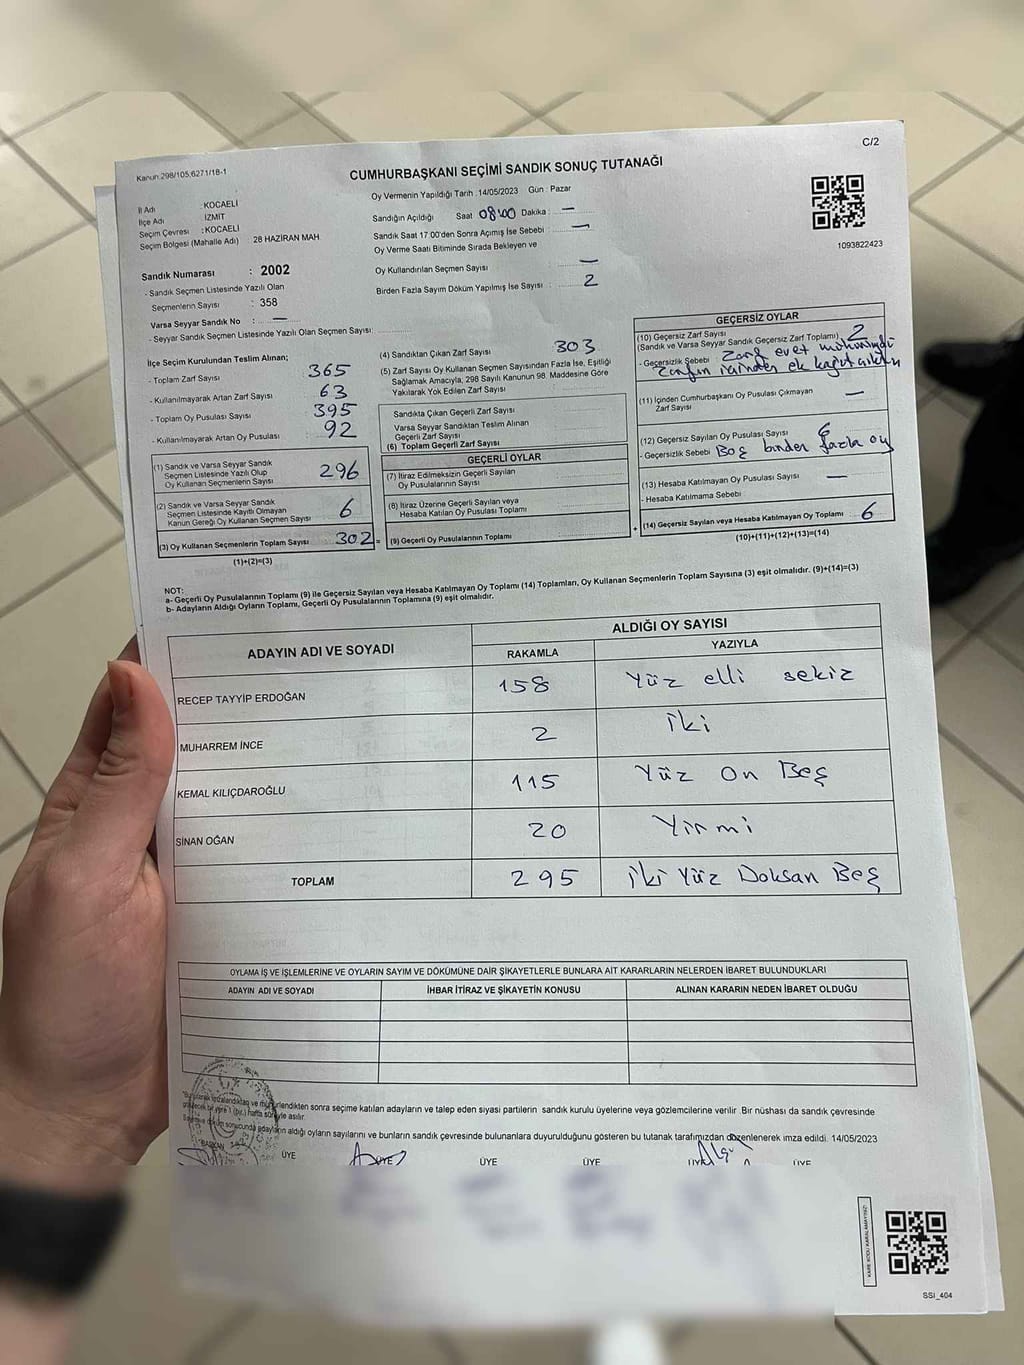 C/2
Kanun:298/105;6271/18-1
CUMHURBAŞKANI SEÇİMİ SANDIK SONUÇ TUTANAĞI
İl Adı : KOCAELİ
İlçe Adı İZMİT
Seçim Çevresi : KOCAELİ
Seçim Bölgesi (Mahalle Adı) 28 HAZİRAN MAH
Oy Vermenin Yapıldığı Tarih :14/05/2023 Gün : Pazar
Sandığın Açıldığı Saat 08:00 Dakika : —
Sandık Saat 17.00'den Sonra Açılmış İse Sebebi : —
Oy Verme Saati Bitiminde Sırada Bekleyen ve
Oy Kullandırılan Seçmen Sayısı : —
Birden Fazla Sayım Döküm Yapılmış İse Sayısı : 2
1093822423
Sandık Numarası : 2002
- Sandık Seçmen Listesinde Yazılı Olan
Seçmenlerin Sayısı : 358
Varsa Seyyar Sandık No : —
- Seyyar Sandık Seçmen Listesinde Yazılı Olan Seçmen Sayısı:
İlçe Seçim Kurulundan Teslim Alınan;
- Toplam Zarf Sayısı 365
- Kullanılmayarak Artan Zarf Sayısı 63
- Toplam Oy Pusulası Sayısı 395
- Kullanılmayarak Artan Oy Pusulası 92
(1) Sandık ve Varsa Seyyar Sandık
Seçmen Listesinde Yazılı Olup
Oy Kullanan Seçmenlerin Sayısı 296
(2) Sandık ve Varsa Seyyar Sandık
Seçmen Listesinde Kayıtlı Olmayan
Kanun Gereği Oy Kullanan Seçmen Sayısı 6
(3) Oy Kullanan Seçmenlerin Toplam Sayısı 302 =
(1)+(2)=(3)
(4) Sandıktan Çıkan Zarf Sayısı 303
(5) Zarf Sayısı Oy Kullanan Seçmen Sayısından Fazla İse, Eşitliği
Sağlamak Amacıyla, 298 Sayılı Kanunun 98. Maddesine Göre
Yakılarak Yok Edilen Zarf Sayısı
Sandıkta Çıkan Geçerli Zarf Sayısı
Varsa Seyyar Sandıktan Teslim Alınan
Geçerli Zarf Sayısı
(6) Toplam Geçerli Zarf Sayısı
GEÇERLİ OYLAR
(7) İtiraz Edilmeksizin Geçerli Sayılan
Oy Pusulalarının Sayısı
(8) İtiraz Üzerine Geçerli Sayılan veya
Hesaba Katılan Oy Pusulası Toplamı
(9) Geçerli Oy Pusulalarının Toplamı +
GEÇERSİZ OYLAR
(10) Geçersiz Zarf Sayısı 2
(Sandık ve Varsa Seyyar Sandık Geçersiz Zarf Toplamı)
- Geçersizlik Sebebi Zarf evet mühürlüydü
Zarfın içinden ek kağıt
(11) İçinden Cumhurbaşkanı Oy Pusulası Çıkmayan
Zarf Sayısı —
(12) Geçersiz Sayılan Oy Pusulası Sayısı 6
- Geçersizlik Sebebi Boş birden fazla oy
(13) Hesaba Katılmayan Oy Pusulası Sayısı —
- Hesaba Katılmama Sebebi
(14) Geçersiz Sayılan veya Hesaba Katılmayan Oy Toplamı 6
(10)+(11)+(12)+(13)=(14)
NOT:
a- Geçerli Oy Pusulalarının Toplamı (9) ile Geçersiz Sayılan veya Hesaba Katılmayan Oy Toplamı (14) Toplamları, Oy Kullanan Seçmenlerin Toplam Sayısına (3) eşit olmalıdır. (9)+(14)=(3)
b- Adayların Aldığı Oyların Toplamı, Geçerli Oy Pusulalarının Toplamına (9) eşit olmalıdır.
ADAYIN ADI VE SOYADI
ALDIĞI OY SAYISI
RAKAMLA YAZIYLA
RECEP TAYYİP ERDOĞAN 158 Yüz elli sekiz
MUHARREM İNCE 2 iki
KEMAL KILIÇDAROĞLU 115 Yüz On Beş
SİNAN OĞAN 20 Yirmi
TOPLAM 295 iki Yüz Doksan Beş
OYLAMA İŞ VE İŞLEMLERİNE VE OYLARIN SAYIM VE DÖKÜMÜNE DAİR ŞİKAYETLERLE BUNLARA AİT KARARLARIN NELERDEN İBARET BULUNDUKLARI
ADAYIN ADI VE SOYADI İHBAR İTİRAZ VE ŞİKAYETİN KONUSU ALINAN KARARIN NEDEN İBARET OLDUĞU
imzalandıktan ve mühürlendikten sonra seçime katılan adayların ve talep eden siyasi partilerin sandık kurulu üyelerine veya gözlemcilerine verilir. Bir nüshası da sandık çevresinde
1 (bir) hafta süreyle asılır.
döküm sonucunda adayların aldığı oyların sayılarını ve bunların sandık çevresinde bulunanlara duyurulduğunu gösteren bu tutanak tarafımızdan düzenlenerek imza edildi. 14/05/2023
BAŞKAN ÜYE ÜYE ÜYE ÜYE ÜYE ÜYE
KARE KODU KARALAMAYINIZ!
SSI_404